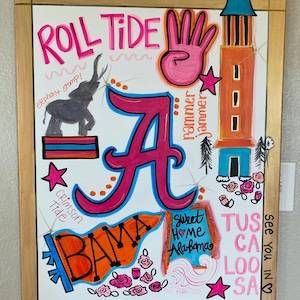 ROLL TIDE
elephant stomp!
hammer
jammer
A
Crimson
Tide
BAMA
Sweet
Home
Alabama
TUS
CA
LOO
SA
SEE YOU IN